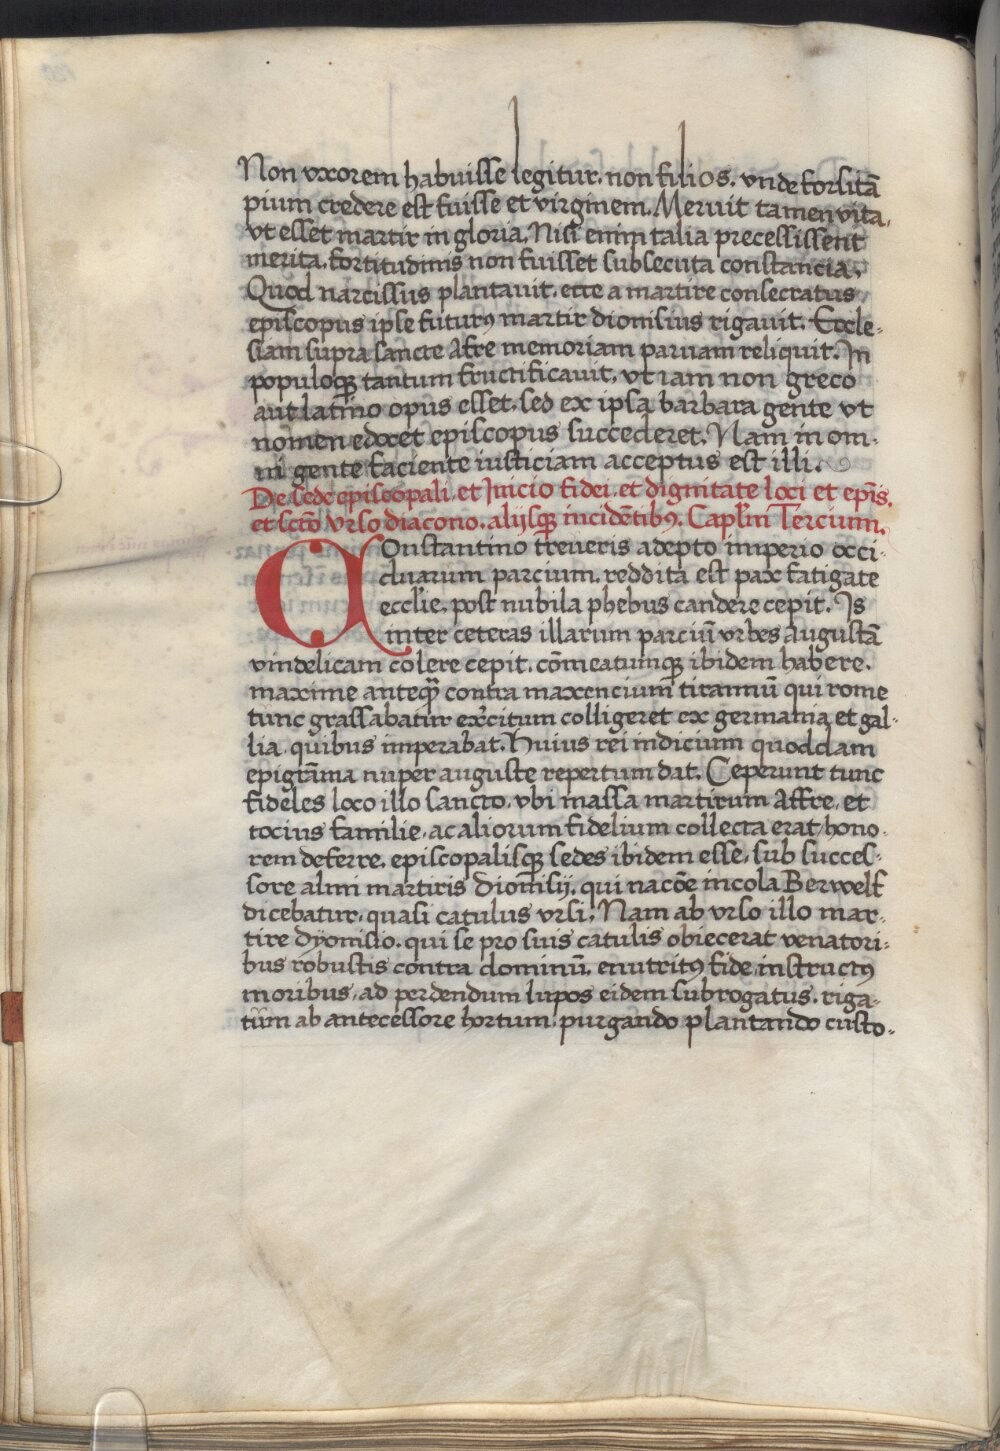 Non vxorem habuisse legitur. non filios. vnde forsitā
pium credere est fuisse et virginem. Meruit tamen vita.
vt esset martir in gloria. Nisi enim talia precessissent
merita. fortitudinis non fuisset subsecuta constancia.
Quod narcissus plantauit. ecce a martire consecratus
episcopus ipse futurꝰ martir dionisius rigauit. Eccle-
siam supra sancte Afre memoriam paruam reliquit. In
populoqꝫ tantum fructificauit. vt iam non greco
aut latino opus esset. sed ex ipsa barbara gente vt
nomen edocet episcopus succederet. Nam in om-
ni gente faciente iusticiam acceptus est illi.
De sede episcopali. et Inicio fidei. et dignitate loci et epīs.
et sctō Vrso diacono. alijsqꝫ incidētibꝰ. Caplm Tercium.
Constantino treueris adepto imperio occi-
duarum parcium. reddita est pax fatigate
ecclie. post nubila phebus candere cepit. Is
inter ceteras illarum parciū vrbes augustā
vindelicam colere cepit. cōmeatumqꝫ ibidem habere.
maxime anteqꝫ contra maxencium tirannū qui rome
tunc grassabatur exrcitum colligeret ex germania et gal-
lia. quibus imperabat. Huius rei indicium quoddam
epigrāma nuper auguste repertum dat. Ceperunt tunc
fideles loco illo sancto. vbi massa martirum Affre. et
tocius familie. ac aliorum fidelium collecta erat hono-
rem deferre. episcopalisqꝫ sedes ibidem esse. sub succes-
sore almi martiris Dionisij. qui nacōe incola Berwelf
dicebatur. quasi catulus vrsi. Nam ab vrso illo mar-
tire dyonisio. qui se pro suis catulis obiecerat venatori-
bus robustis contra dominū. enutritꝰ fide instructꝰ
moribus. ad perdendum lupos eidem subrogatus. riga-
tum ab antecessore hortum. purgando plantando custo-